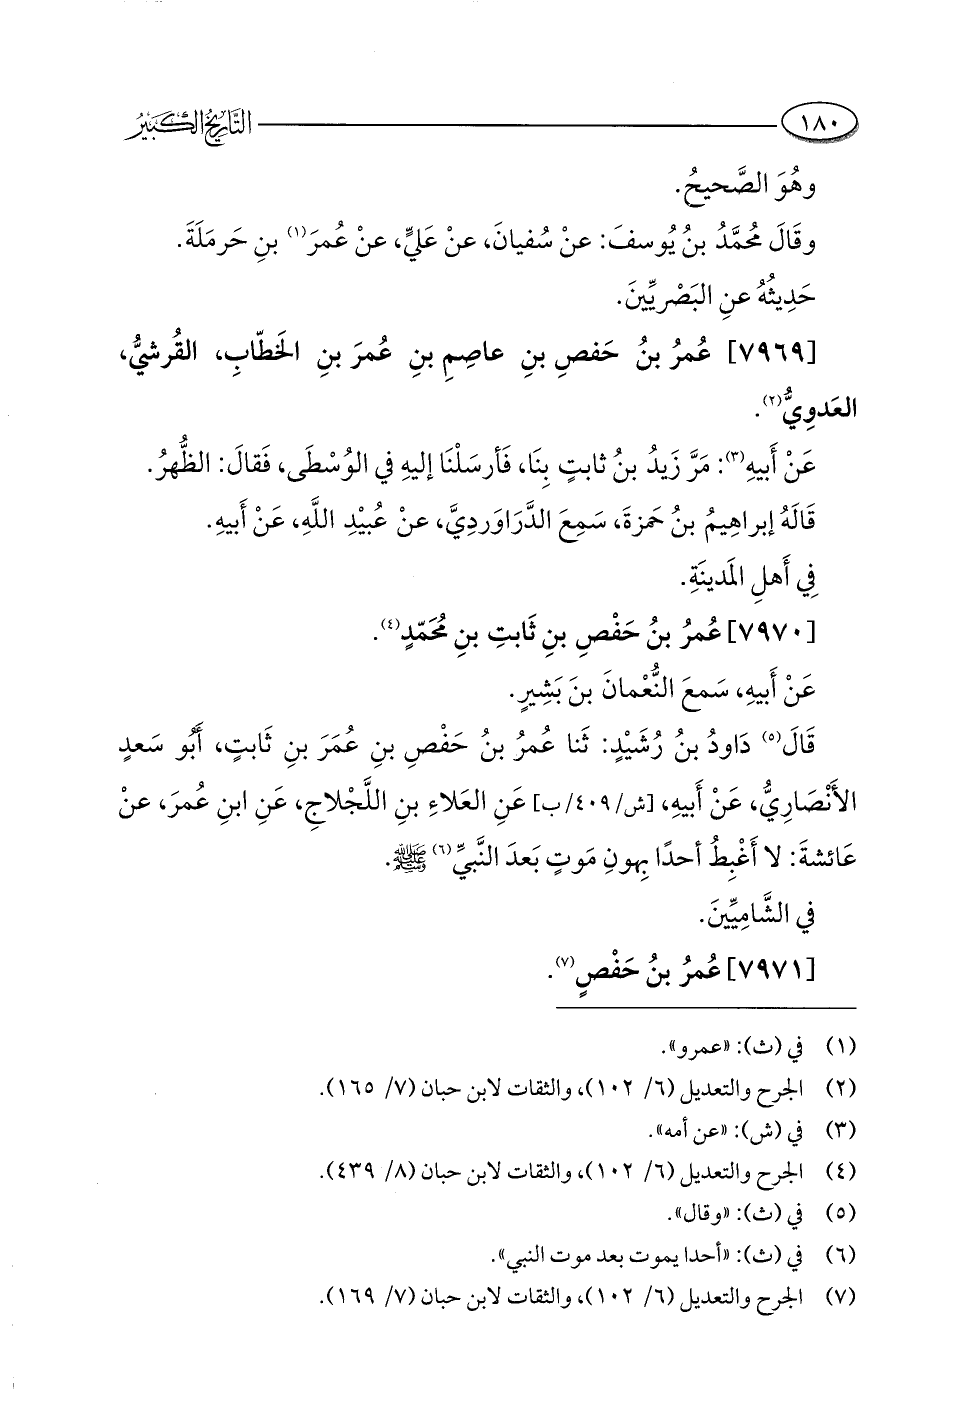 ١٨٠ التاريخ الكبير
وهُوَ الصَّحيحُ.
وقَالَ مُحمَّدُ بنُ يُوسفَ: عنْ سُفيانَ، عنْ عَليٍّ، عنْ عُمرَ(١) بنِ حَرملَةَ.
حَدِيثُهُ عنِ البَصْريِّينَ.
[٧٩٦٩] عُمرُ بنُ حَفصِ بنِ عاصِمِ بنِ عُمرَ بنِ الخَطّابِ، القُرشيُّ،
العَدوِيُّ(٢).
عَنْ أَبيهِ(٣): مَرَّ زَيدُ بنُ ثابتٍ بِنَا، فَأرسَلْنَا إليهِ في الوُسْطَى، فَقالَ: الظُّهرُ.
قَالَهُ إبراهِيمُ بنُ حَمزةَ، سَمِعَ الدَّرَاوَردِيَّ، عنْ عُبَيْدِ اللَّهِ، عَنْ أَبيهِ.
فِي أَهلِ المَدينَةِ.
[٧٩٧٠] عُمرُ بنُ حَفْصِ بنِ ثَابتِ بنِ مُحَمّدٍ(٤).
عَنْ أَبيهِ، سَمعَ النُّعْمانَ بنَ بَشِيرٍ.
قَالَ(٥) دَاودُ بنُ رُشَيْدٍ: ثَنا عُمرُ بنُ حَفْصِ بنِ عُمَرَ بنِ ثَابتٍ، أَبُو سَعدٍ
الأَنْصَارِيُّ، عَنْ أَبيهِ، [ش/٤٠٩/ب] عَنِ العَلاءِ بنِ اللَّجْلاجِ، عَنِ ابنِ عُمرَ، عنْ
عَائشةَ: لا أَغْبِطُ أحدًا بِهونِ مَوتٍ بَعدَ النَّبيِّ(٦) ﷺ.
في الشَّامِيِّينَ.
[٧٩٧١] عُمرُ بنُ حَفْصٍ(٧).
(١) في (ث): «عمرو».
(٢) الجرح والتعديل (٦/ ١٠٢)، والثقات لابن حبان (٧/ ١٦٥).
(٣) في (ش): «عن أمه».
(٤) الجرح والتعديل (٦/ ١٠٢)، والثقات لابن حبان (٨/ ٤٣٩).
(٥) في (ث): «وقال».
(٦) في (ث): «أحدا يموت بعد موت النبي».
(٧) الجرح والتعديل (٦/ ١٠٢)، والثقات لابن حبان (٧/ ١٦٩).